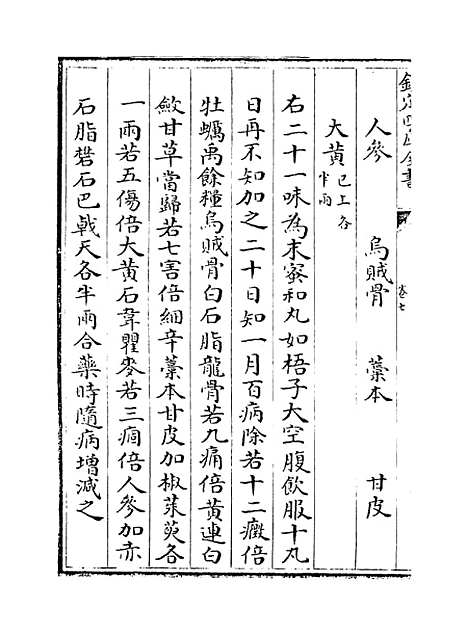 欽定四庫全書
卷七
人參　烏賊骨　藁本　甘皮
大黃已上各半兩
右二十一味為末蜜和丸如梧子大空腹飲服十丸
日再不知加之二十日知一月百病除若十二癥倍
牡蠣禹餘糧烏賊骨白石脂龍骨若九痛倍黃連白
斂甘草當歸若七害倍細辛藁本甘皮加椒茱萸各
一兩若五傷倍大黃石韋瞿麥若三痼倍人參加赤
石脂礬石巴戟天各半兩合藥時隨病增減之